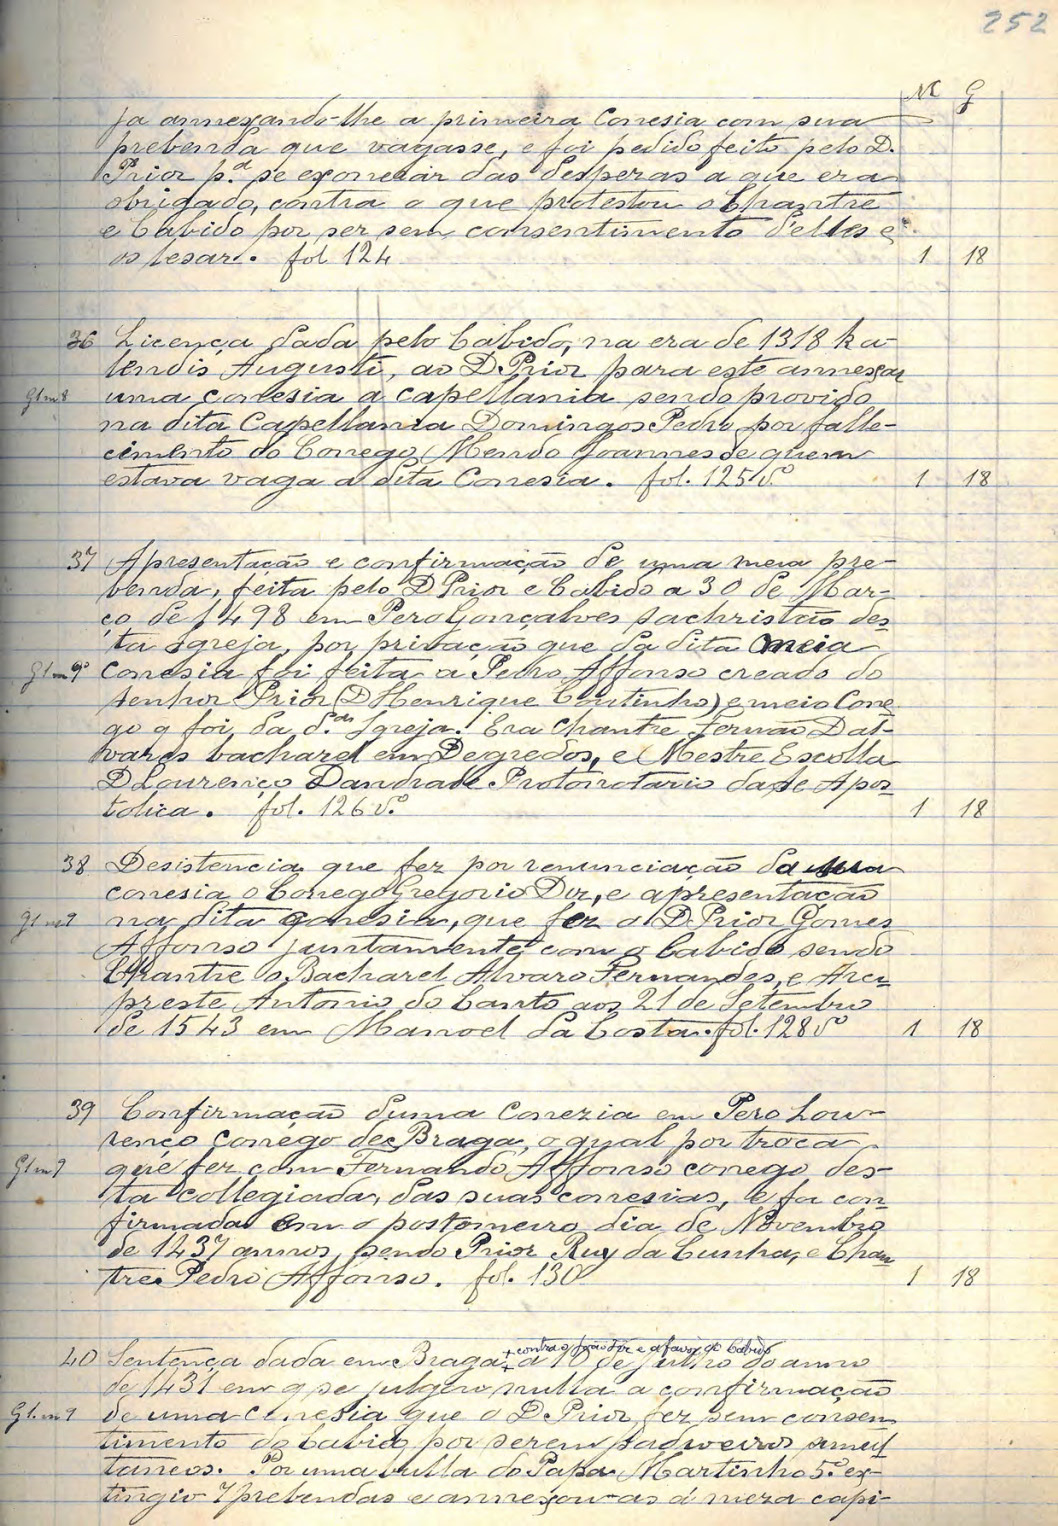 252
M G
ja annexando-lhe a primeira Conesia com sua
prebenda que vagasse, e foi pedido feito pelo D.
Prior p.ª se exonerar das despezas a que era
obrigado, contra o que protestou o Chantre
e Cabido por ser sem consentimento delles e
os lesar. fol 124 1 18
36 Licença dada pelo Cabido, na era de 1318 ka-
lendis Augusti, ao D. Prior para este annexar
Gl m 8 uma conesia a capellania sendo provido
na dita Capellania Domingos Pedro por falle-
cimento do Conego Mendo Joannes de quem
estava vaga a dita Conesia. fol. 125 v.º 1 18
37 Apresentação e confirmação de uma meia pre-
benda, feita pelo D. Prior e Cabido a 30 de Mar-
ço de 1498 em Pero Gonçalves sachristão des-
ta Igreja, por privação que da dita meia
Gl m 9º conesia foi feita a Pedro Affonso creado do
senhor Prior (D Henrique Coutinho) e meio Cone-
go q foi da d.ª Igreja. Era chantre Fernão Dal-
vares bacharel em Degredos, e Mestre Escolla
D Lourenço Dandrade Protonotario da se Apos-
tolica. fol. 126 v.º 1 18
38 Desistencia que fez por renunciação da sua
conesia o Conego Gregorio Diz, e apresentação
Gl m 9 na dita conesia, que fez o D. Prior Gomes
Affonso juntamente com o Cabido sendo
Chantre o Bacharel Alvaro Fernandes, e Arci-
preste Antonio do Canto aos 21 de Setembro
de 1543 em Manoel da Costa. fol. 128 v.º 1 18
39 Confirmação duma Conezia em Pero Lou-
renço conego de Braga, o qual por troca
Gl m 9 que fez com Fernando Affonso conego des-
ta collegiada, das suas conesias, e foi con-
firmada em o postomeiro dia de Novembro
de 1437 annos, sendo Prior Ruy da Cunha, e Chan-
tre Pedro Affonso. fol. 130 1 18
+ contra o e a favor do Cabido
40 Sentença dada em Braga + a 10 de Julho do anno
de 1431 em q se julgou nulla a confirmação
Gl m 9 de uma conesia que o D. Prior fez sem consen-
timento do Cabido por serem padroeiros simul-
taneos. Por uma bulla do Papa Martinho 5.º ex-
tingiu 7 prebendas e annexou-as á meza capi-